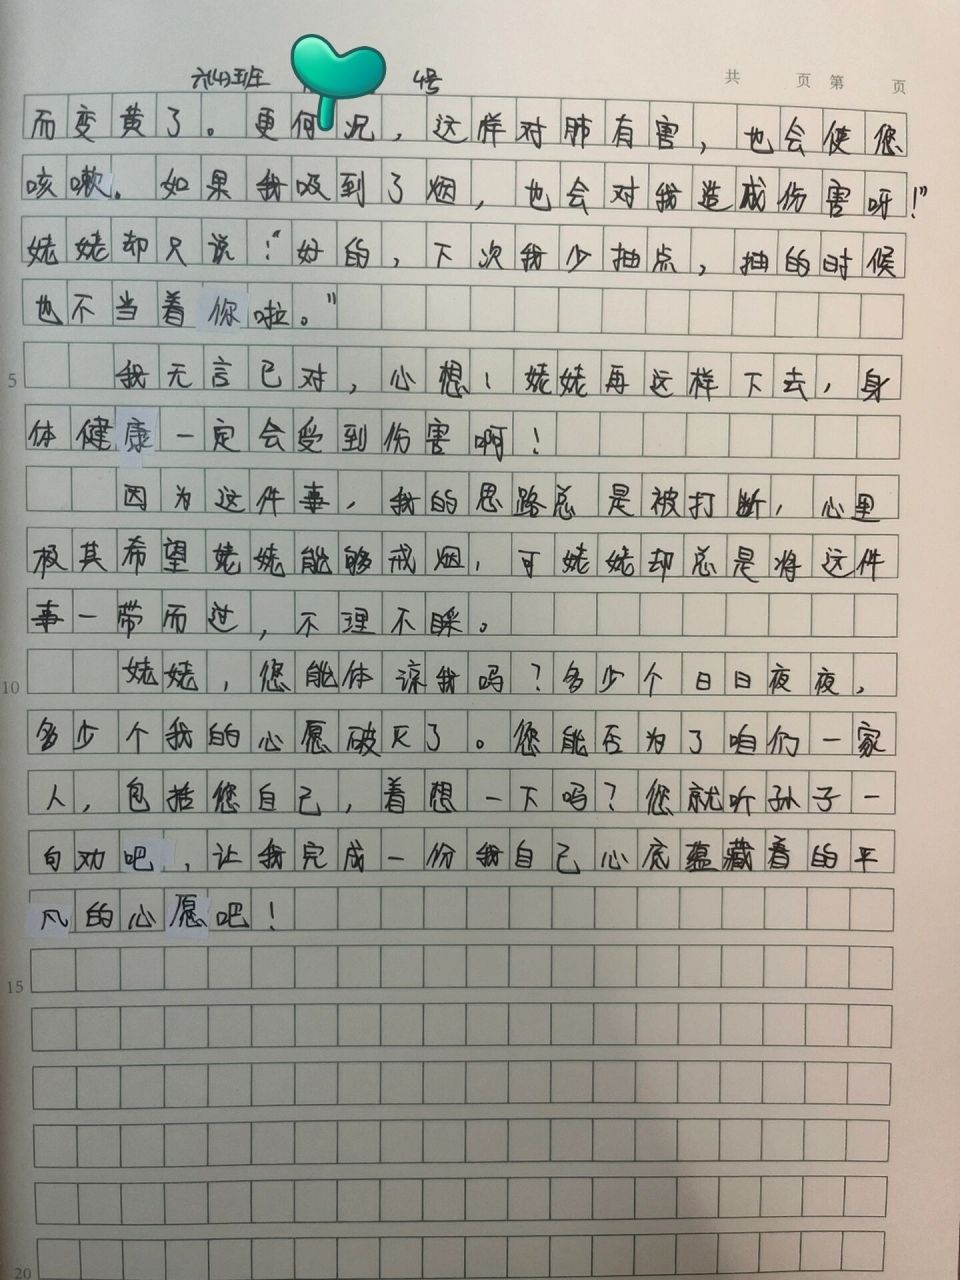 六(4)班 4号
共 页 第 页
而变黄了。更何况，这样对肺有害，也会使您
咳嗽。如果我吸到了烟，也会对我造成伤害呀！”
姥姥却只说：“好的，下次我少抽点，抽的时候
也不当着你啦。”
5 我无言已对，心想：姥姥再这样下去，身
体健康一定会受到伤害啊！
因为这件事，我的思路总是被打断，心里
极其希望姥姥能够戒烟，可姥姥却总是将这件
事一带而过，不理不睬。
10 姥姥，您能体谅我吗？多少个日日夜夜，
多少个我的心愿破灭了。您能否为了咱们一家
人，包括您自己，着想一下吗？您就听孙子一
句劝吧，让我完成一份我自己心底蕴藏着的平
凡的心愿吧！
15
20